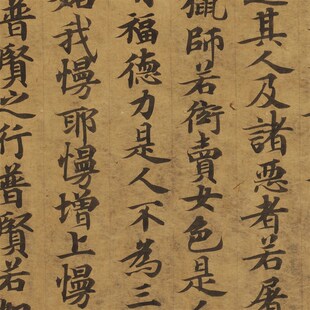 其人及諸惡者若屠
獵師若衒賣女色是人
有福德力是人不為三
妬我慢耶慢增上慢
普賢之行普賢若如